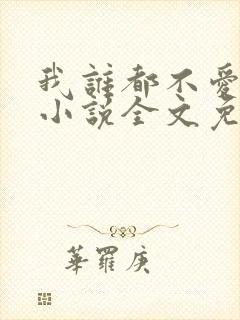 我誰都不愛
小說全文免
華羅庚